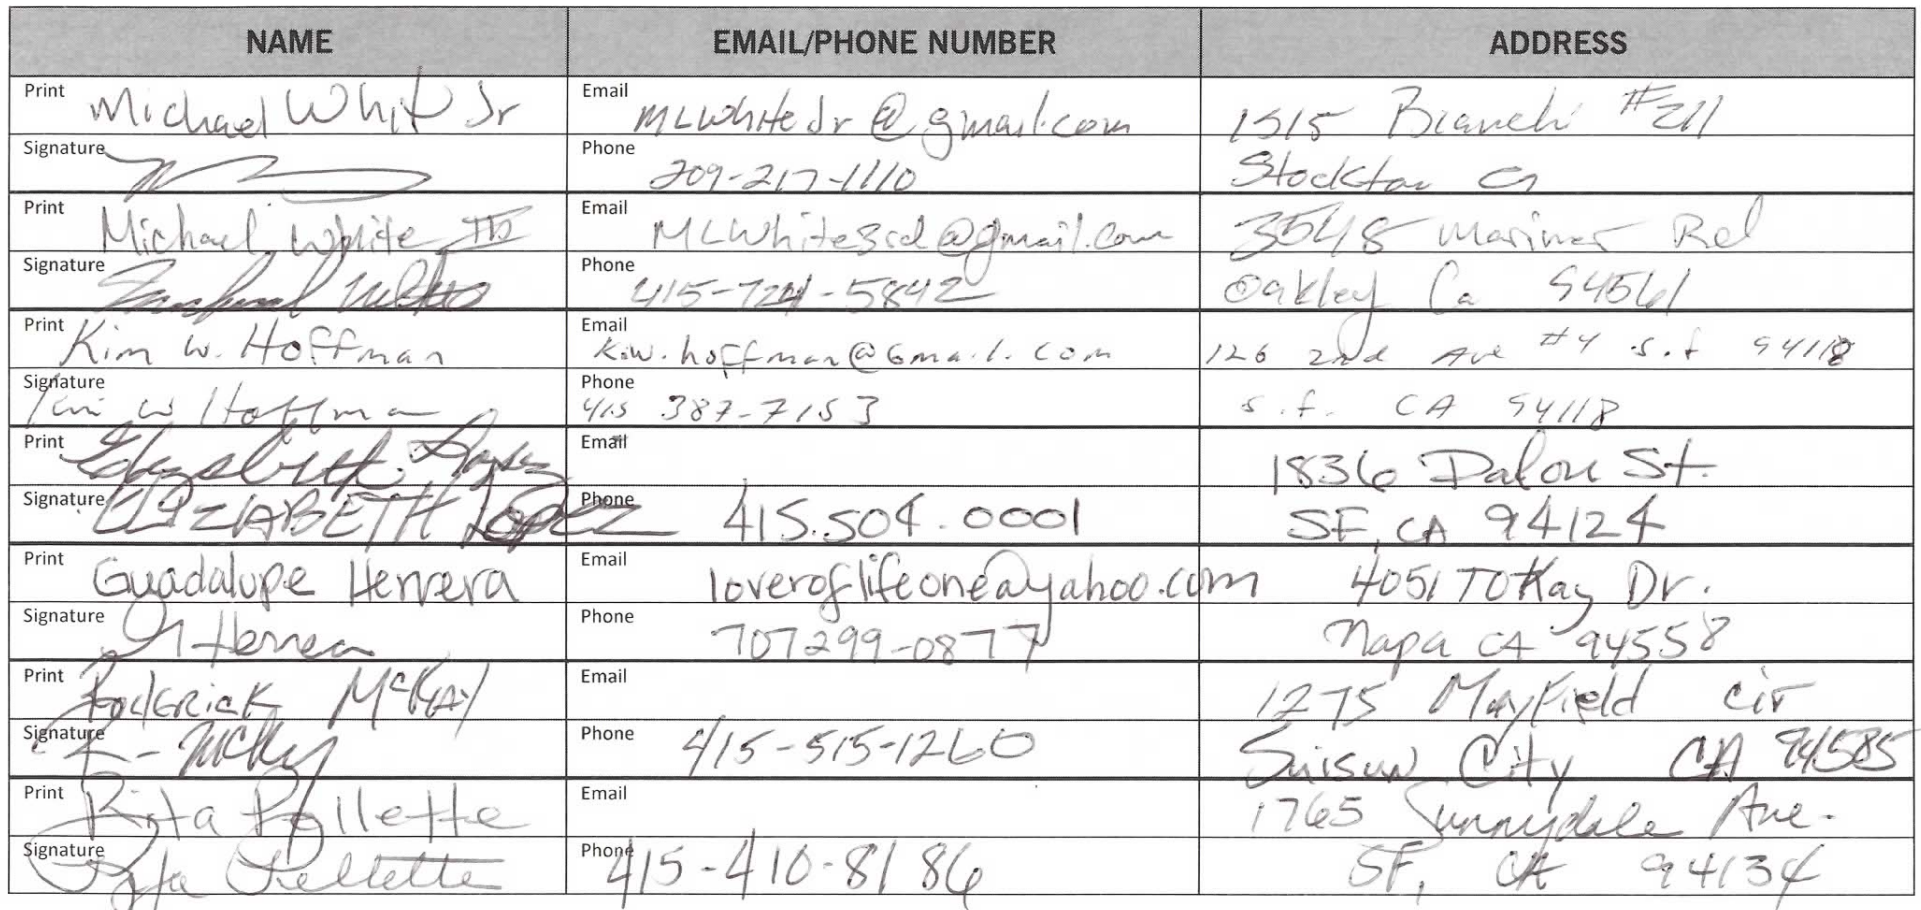 NAME EMAIL/PHONE NUMBER ADDRESS
Print Michael White Jr Email MLWhiteJr@gmail.com 1515 Bianchi #211
Signature Phone 209-217-1110 Stockton Ca
Print Michael White III Email MLWhite3rd@gmail.com 3548 Mariner Rd
Signature Michael White Phone 415-724-5842 Oakley Ca 94561
Print Kim W. Hoffman Email K.W.hoffman@Gmail.com 126 2nd Ave #4 S.f 94118
Signature Kim W Hoffman Phone 415 387-7153 S.f. CA 94118
Print Elizabeth Lopez Email 1836 St.
Signature ELIZABETH Lopez Phone 415.504.0001 SF, CA 94124
Print Guadalupe Herrera Email loveroflifeone@yahoo.com 4051 TOKay Dr.
Signature G Herrera Phone 707299-0877 Napa CA 94558
Print Roderick McKay Email 1275 Mayfield cir
Signature R-McKy Phone 415-515-1260 Suisun City CA 94585
Print Rita Pellette Email 1765 Sunnydale Ave.
Signature Rita Pellette Phone 415-410-8186 SF, CA 94134